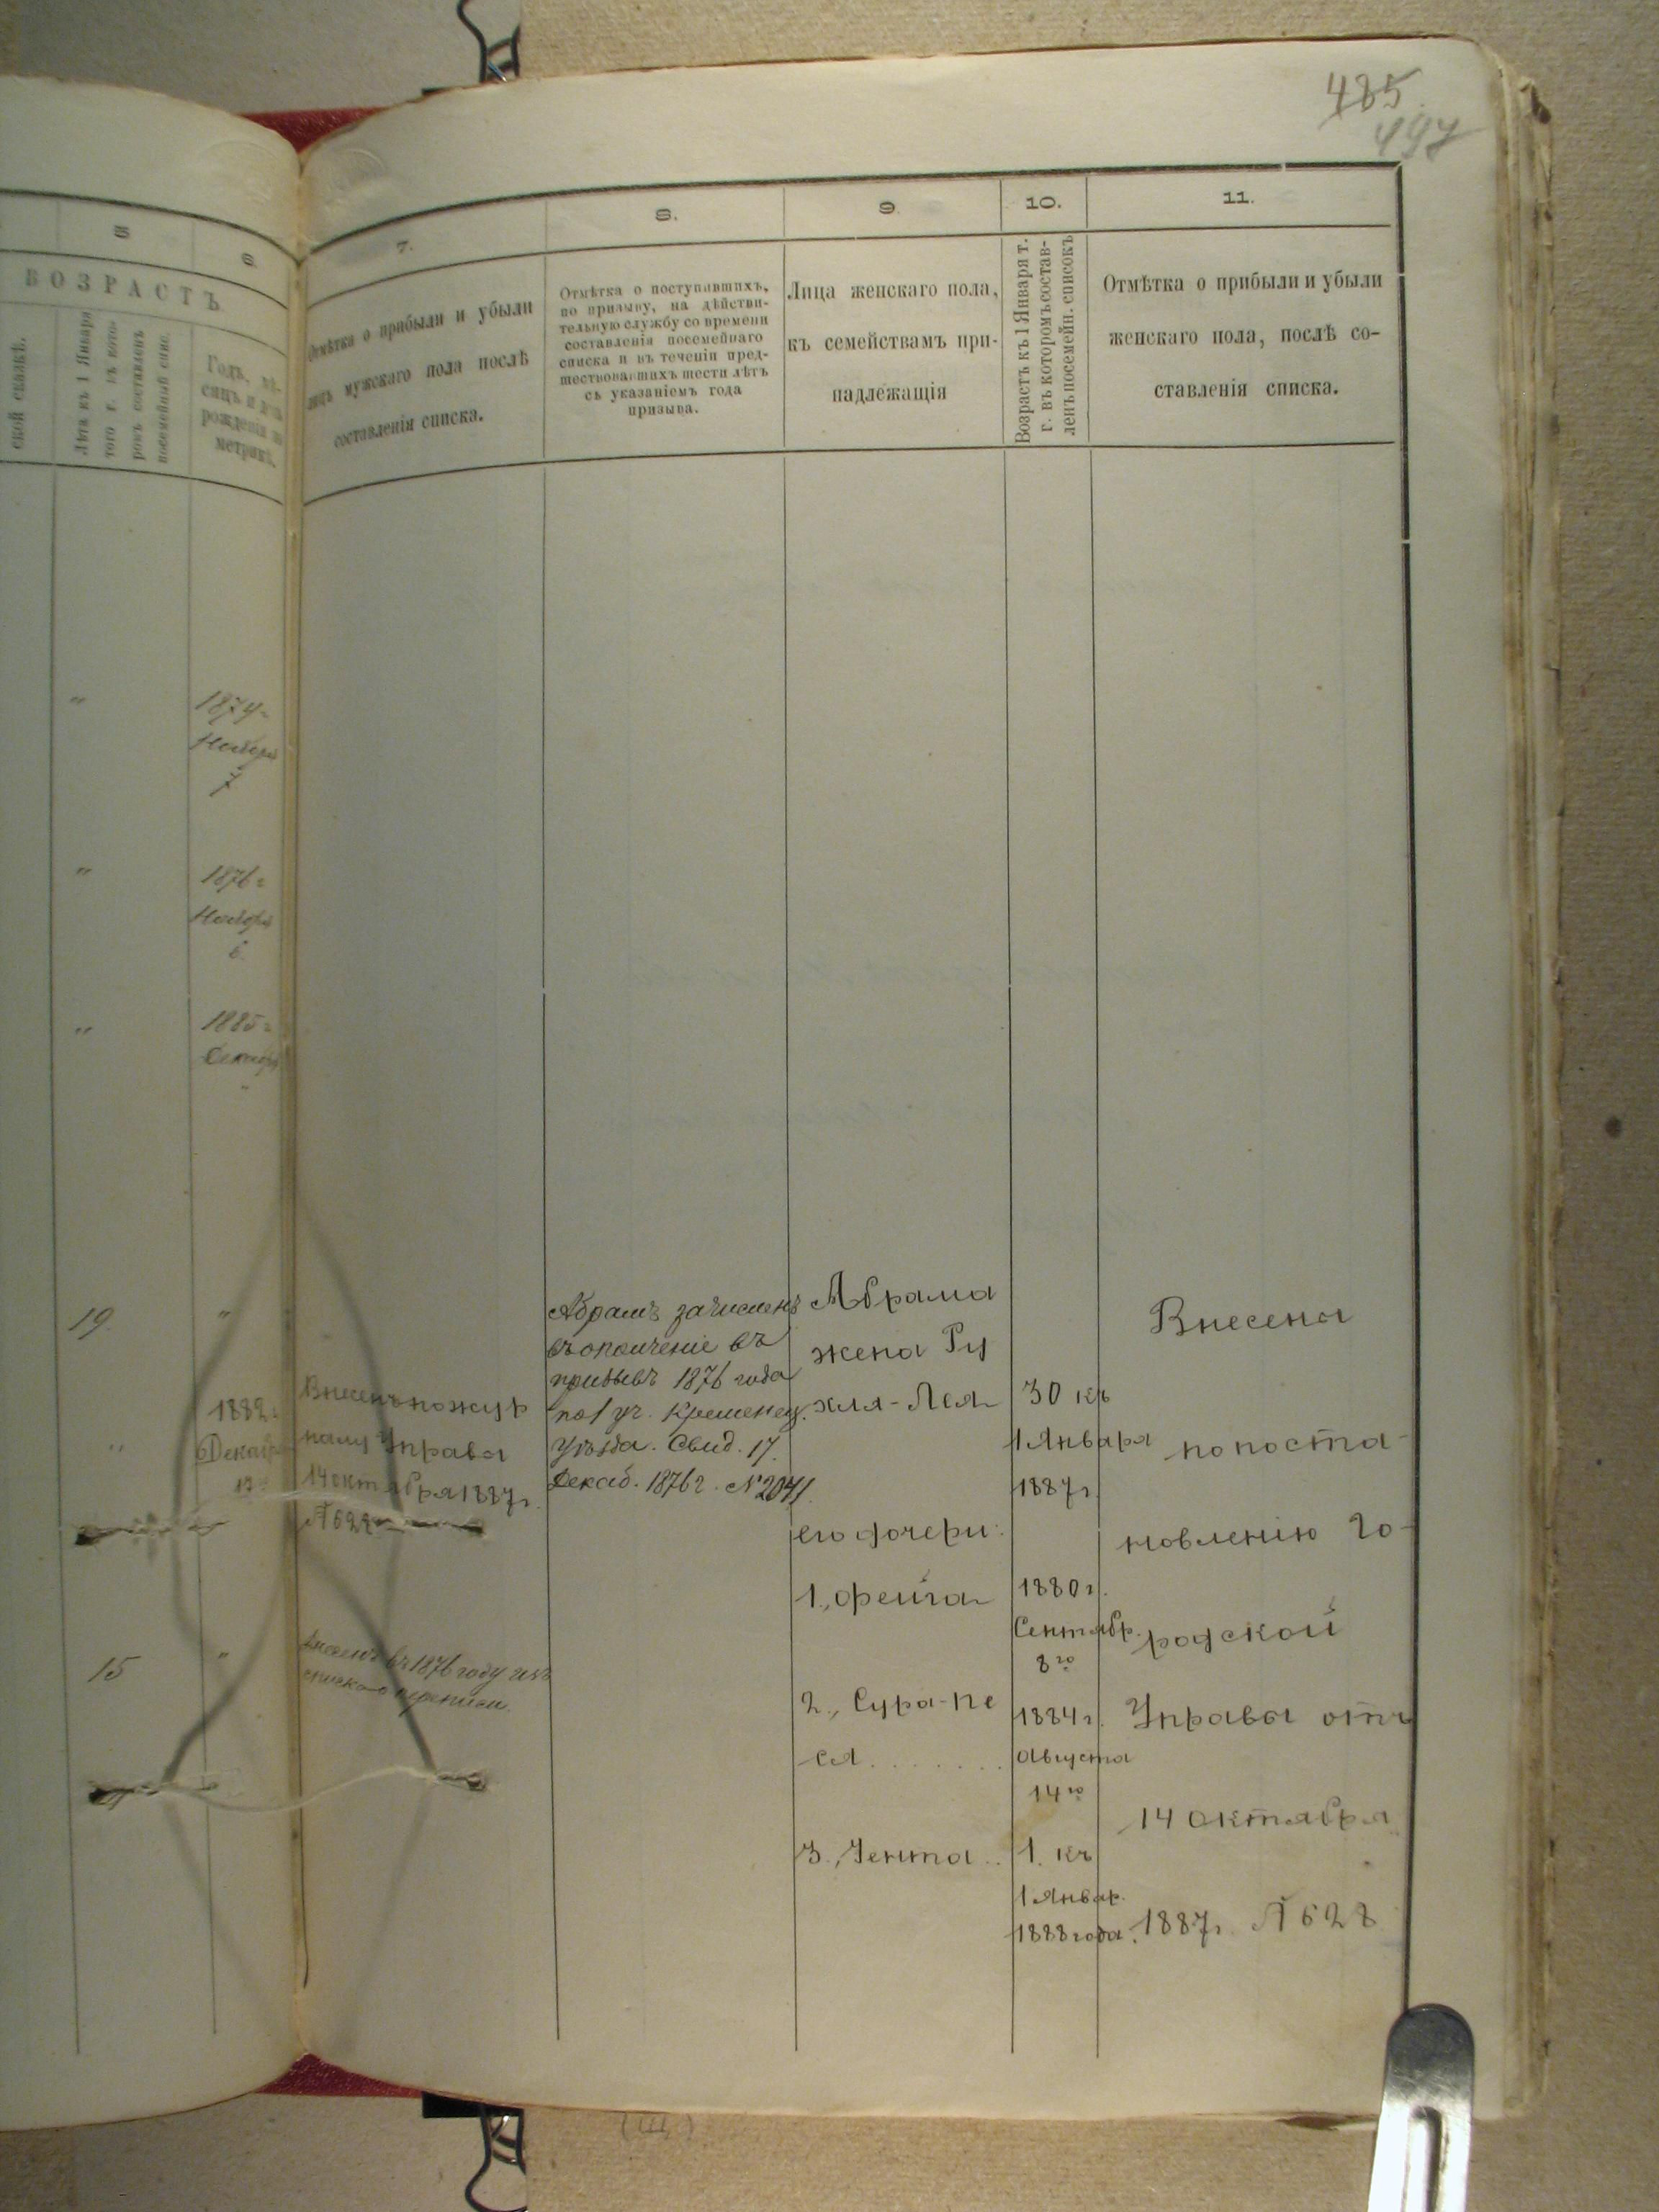 485
497
5
6.
ВОЗРАСТЪ
ской сказкѣ.
Лѣта къ 1 Января
того г. въ кото-
ромъ составленъ
посемейный спис.
Годъ, мѣ-
сяцъ и день
рожденія по
метрикѣ.
1874 г.
Ноября
7
1876 г.
Ноября
6
1885 г.
19
1882 г.
Декабр
15
7.
Отмѣтка о прибыли и убыли
лицъ мужскаго пола послѣ
составленія списка.
Внесенъ по жур
налу Управы
14 октября 1887 г.
№ 628
Внесенъ въ 1876 году изъ
8.
Отмѣтка о поступившихъ,
по призыву, на дѣйстви-
тельную службу со времени
составленія посемейнаго
списка и въ теченіи пред-
шествовавшихъ шести лѣтъ
съ указаніемъ года
призыва.
Абрамъ зачисленъ
въ ополченіе въ
призывъ 1876 года
по 1 уч. Кременец.
уѣзда. Свид. 17
Декаб. 1876 г. № 2041.
9
Лица женскаго пола,
къ семействамъ при-
надлежащія
Абрама
жена Ру
хля-Лея
его дочери:
1., Фейга
2., Сура-Пе
ся . . . . . . .
3., Зента ..
10.
Возрастъ къ 1 Января т.
г. въ которомъ состав-
ленъ посемейн. списокъ
30 къ
1 Января
1887 г.
1880 г.
Сентябр.
8го
1884 г.
Августа
14го
1. къ
1 Январ.
1888 года.
11.
Отмѣтка о прибыли и убыли
женскаго пола, послѣ со-
ставленія списка.
Внесены
по поста-
новленію Го-
родской
Управы отъ
14 октября
1887 г. № 628